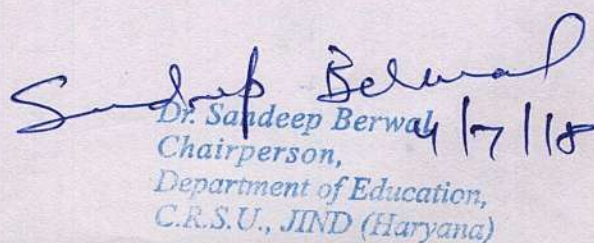 Sandeep Berwal
4/7/18
Dr. Sandeep Berwal
Chairperson,
Department of Education,
C.R.S.U., JIND (Haryana)